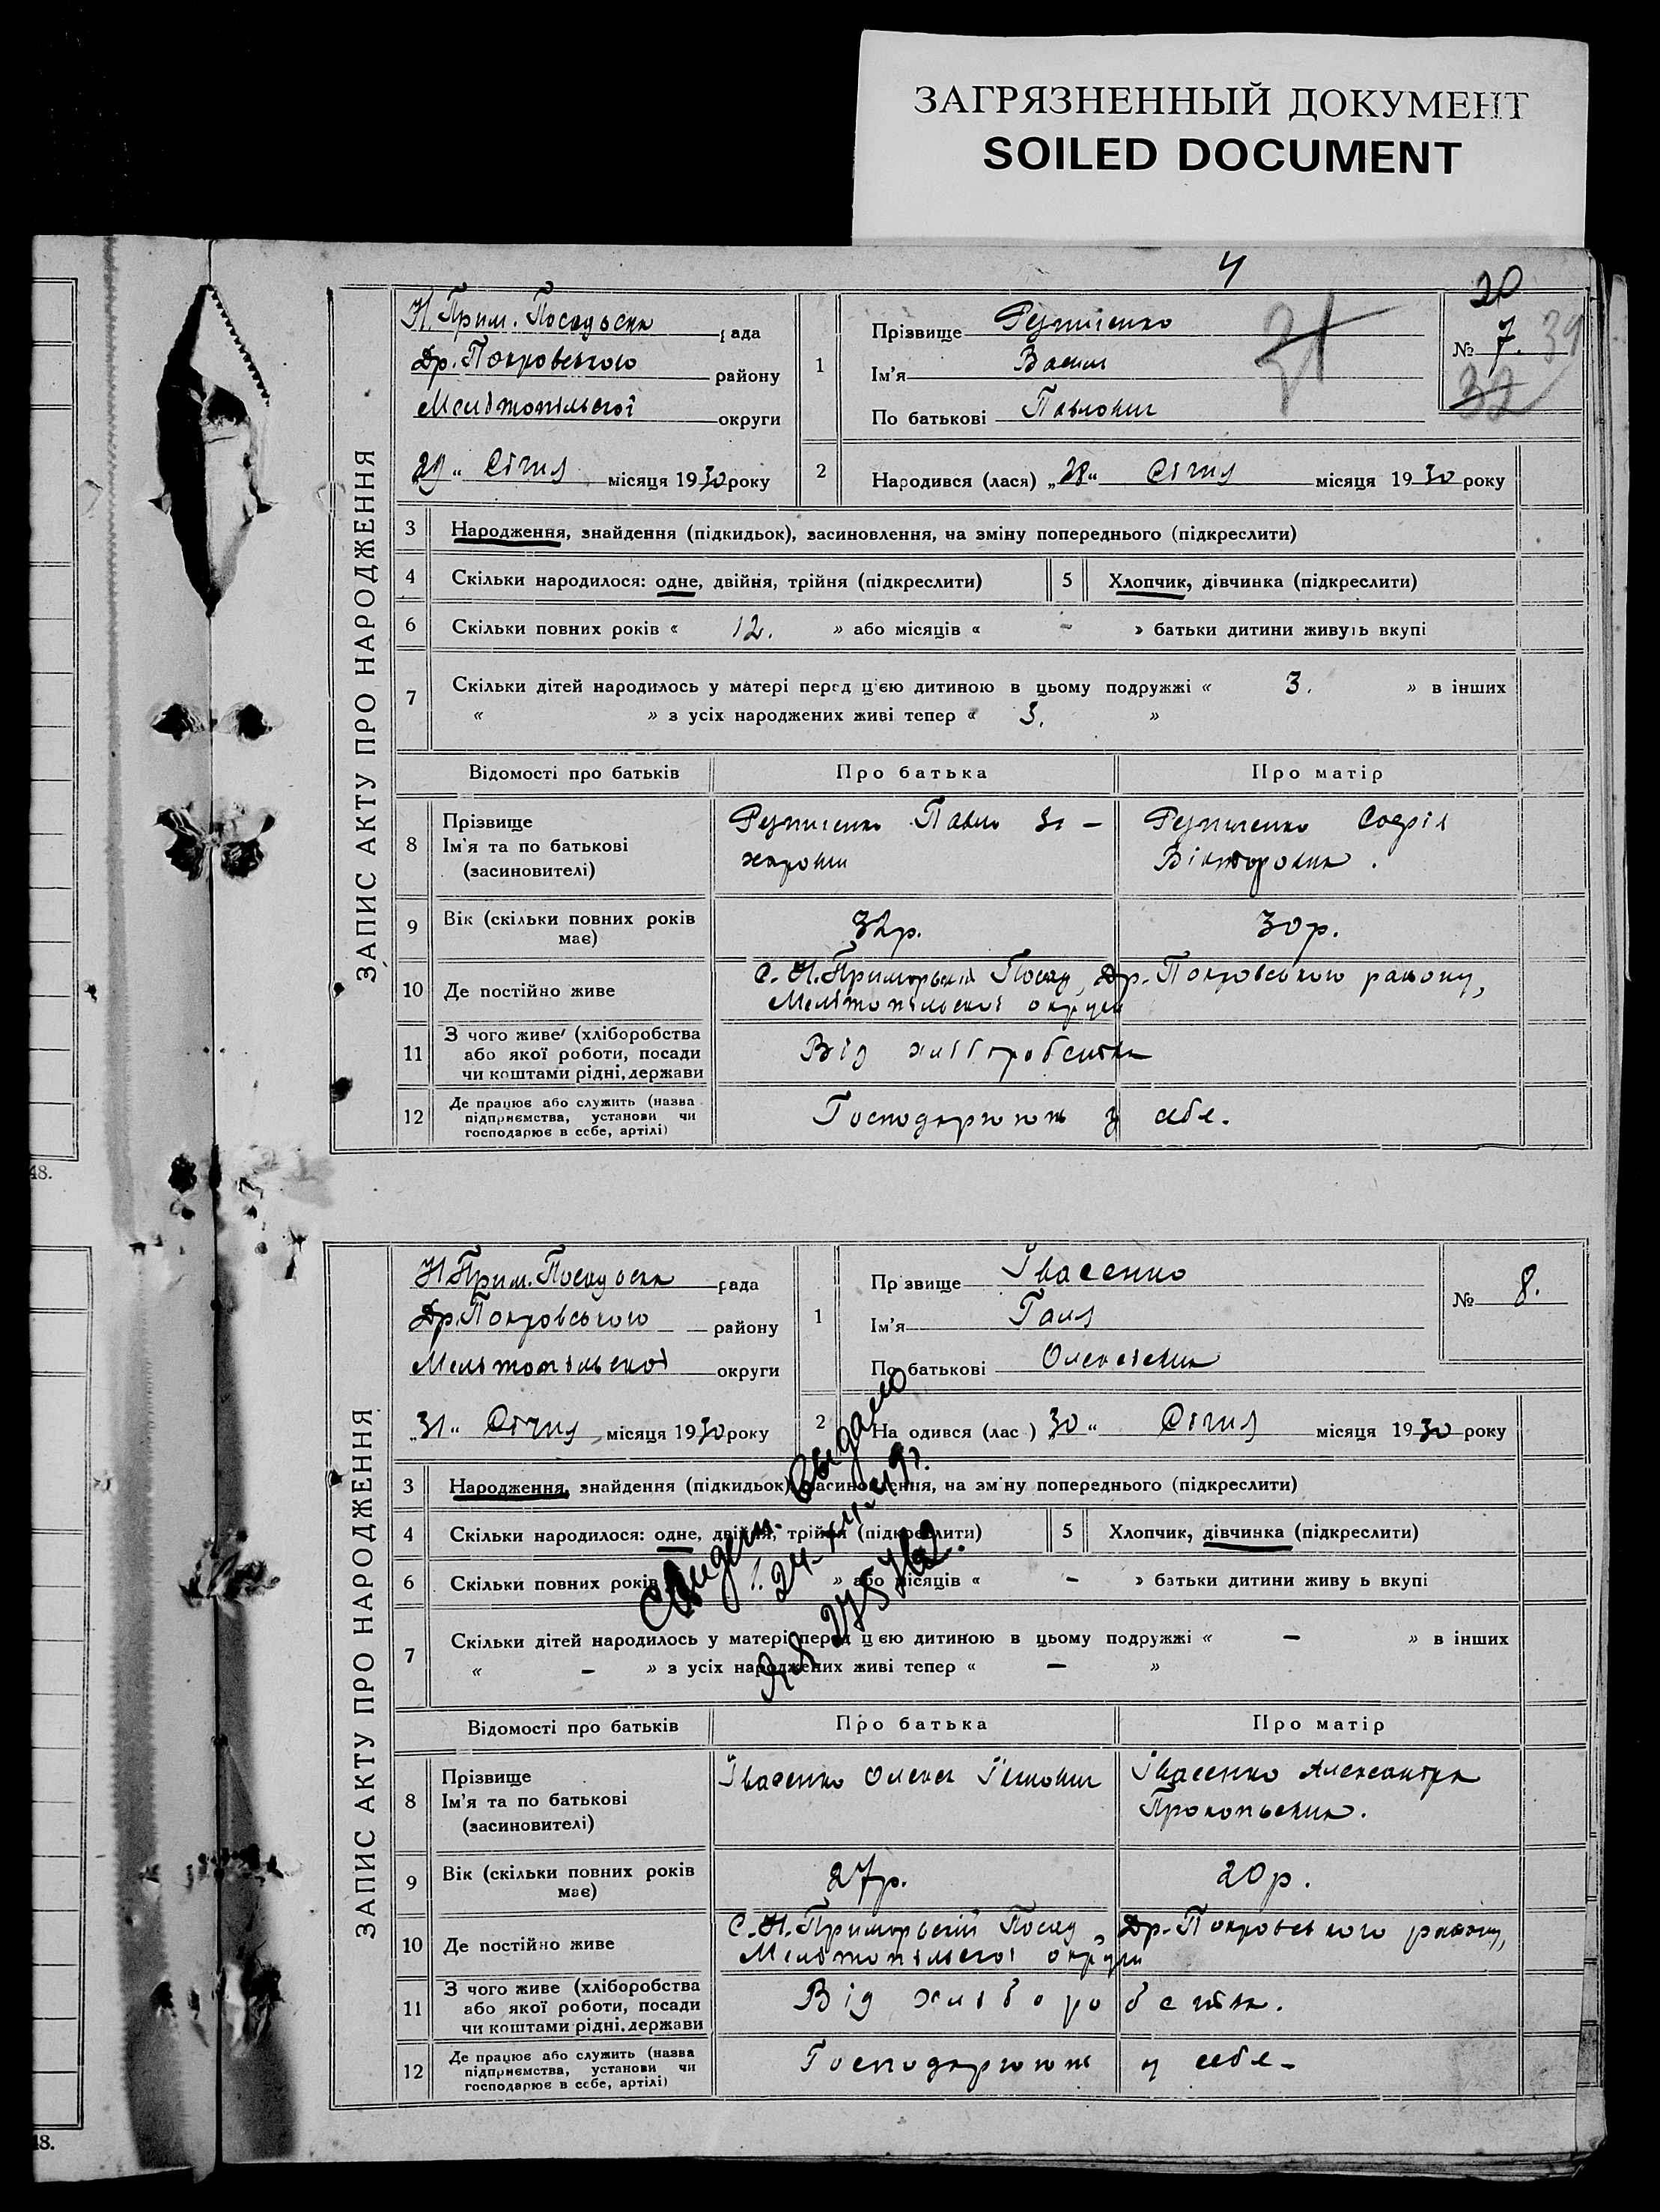 ЗАГРЯЗНЕННЫЙ ДОКУМЕНТ
SOILED DOCUMENT
4
20
ЗАПИС АКТУ ПРО НАРОДЖЕННЯ
Н. Прим. Посадська рада
Др. Покровського району
Мелітопільської округи
„29“ Січня місяця 1930 року
1 Прізвище
Ім'я Василь
По батькові Павлович
31
№ 7. 39
32
2 Народився (лася) „28“ Січня місяця 1930 року
3 Народження, знайдення (підкидьок), засиновлення, на зміну попереднього (підкреслити)
4 Скільки народилося: одне, двійня, трійня (підкреслити) 5 Хлопчик, дівчинка (підкреслити)
6 Скільки повних років « 12. » або місяців « - » батьки дитини живуть вкупі
7 Скільки дітей народилось у матері перед цією дитиною в цьому подружжі « 3. » в інших
« » з усіх народжених живі тепер « 3. »
Відомості про батьків Про батька Про матір
8 Прізвище
Ім'я та по батькові
(засиновителі)
Павло За-
харович
Софія
Вікторовна.
9 Вік (скільки повних років має) 32р. 30р.
10 Де постійно живе С. Н. Приморський Посад, Др. Покровського району,
Мелітопільської округи
11 З чого живе (хліборобства
або якої роботи, посади
чи коштами рідні, держави
Від хліборобства
12 Де працює або служить (назва
підприємства, установи чи
господарює в себе, артілі)
Господарюють у себе.
48.
ЗАПИС АКТУ ПРО НАРОДЖЕННЯ
Н Прим. Посадська рада
Др. Покровського району
Мелітопільської округи
„31“ Січня місяця 1930 року
1 Пр звище Івасенко
Ім'я Галя
По батькові Олексієвна
№ 8.
2 На одився (лас ) „30“ Січня місяця 1930 року
3 Народження, знайдення (підкидьок), засиновлення, на зм ну попереднього (підкреслити)
4 Скільки народилося: одне, двійня, трійня (підкреслити) 5 Хлопчик, дівчинка (підкреслити)
6 Скільки повних років 1. » або місяців « - » батьки дитини живу ь вкупі
7 Скільки дітей народилось у матері перед ц єю дитиною в цьому подружжі « - » в інших
« - » з усіх народжених живі тепер « - »
Свидет. выдано
Відомості про батьків Про батька Про матір
8 Прізвище
Ім'я та по батькові
(засиновителі)
Івасенко Олекса
Івасенко Александра
Прокопьевна.
9 Вік (скільки повних років має) 27р. 20р.
10 Де постійно живе С. Н. Приморський Посад, Др. Покровського району,
Мелітопільської округи
11 З чого живе (хліборобства
або якої роботи, посади
чи коштами рідні, держави
Від хліборобства.
12 Де працює або служить (назва
підприємства, установи чи
господарює в себе, артілі)
Господарюють у себе-
48.